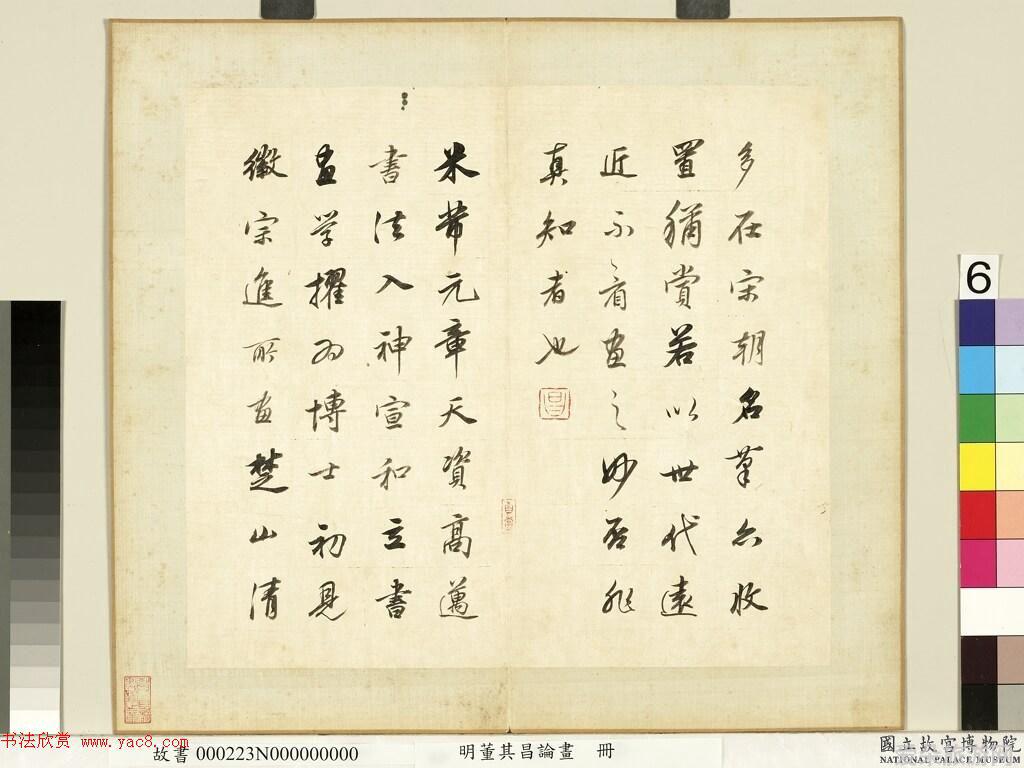 多在宋朝名筆亦收
置猶賞若以世代遠
近不看画之妙否非
真知者也
米芾元章天資高邁
書法入神宣和立書
画学擢为博士初見
徽宗進所画楚山清
6
书法欣赏 www.yac8.com
故書 000223N000000000
明董其昌論畫 冊
國立故宮博物院
NATIONAL PALACE MUSEUM